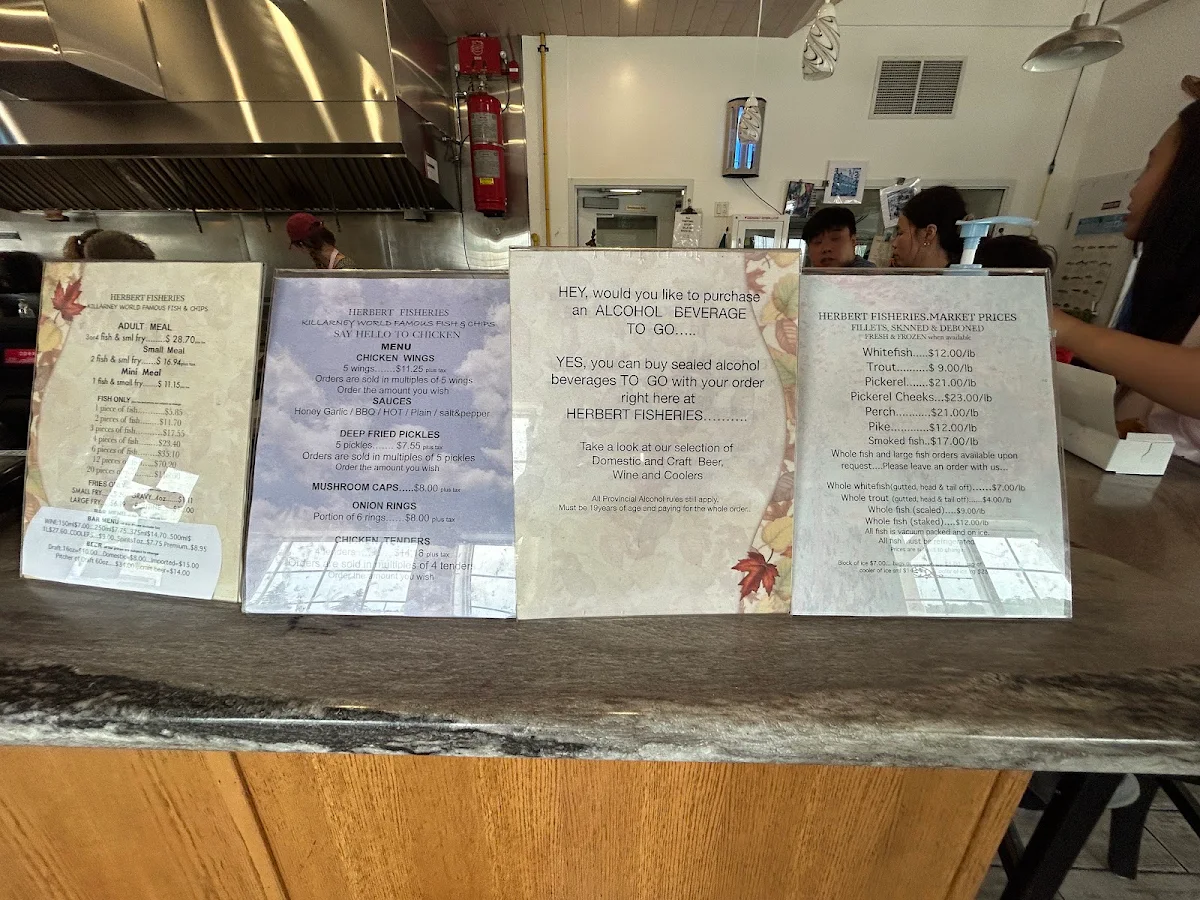 HERBERT FISHERIES
KILLARNEY WORLD FAMOUS FISH & CHIPS
ADULT MEAL
fish & sml fry......$ 28.70
Small Meal
2 fish & sml fry......$ 16.94
Mini Meal
1 fish & small fry......$ 11.15
FISH ONLY
1 piece of fish......$5.85
2 pieces of fish......$11.70
3 pieces of fish......$17.55
4 pieces of fish......$23.40
6 pieces of fish......$35.10
12 pieces
20 pieces
FRIES
SMALL FRY
GRAVY 4oz
LARGE FRY
BAR MENU
WINE 150ml$7.00
BEER
HERBERT FISHERIES
KILLARNEY WORLD FAMOUS FISH & CHIPS
SAY HELLO TO CHICKEN
MENU
CHICKEN WINGS
5 wings......$11.25 plus tax
Orders are sold in multiples of 5 wings
Order the amount you wish
SAUCES
Honey Garlic / BBQ / HOT / Plain / salt&pepper
DEEP FRIED PICKLES
5 pickles...... $7.55 plus tax
Orders are sold in multiples of 5 pickles
Order the amount you wish
MUSHROOM CAPS.....$8.00 plus tax
ONION RINGS
Portion of 6 rings......$8.00 plus tax
CHICKEN TENDERS
plus tax
Orders are sold in multiples of 4 tenders
Order the amount you wish
HEY, would you like to purchase
an ALCOHOL BEVERAGE
TO GO.....
YES, you can buy sealed alcohol
beverages TO GO with your order
right here at
HERBERT FISHERIES.........
Take a look at our selection of
Domestic and Craft Beer,
Wine and Coolers
All Provincial Alcohol rules still apply.
Must be 19years of age and paying for the whole order.
HERBERT FISHERIES.MARKET PRICES
FILLETS, SKNNED & DEBONED
FRESH & FROZEN when available
Whitefish....$12.00/lb
Trout.........$ 9.00/lb
Pickerel......$21.00/lb
Pickerel Cheeks...$23.00/lb
Perch..........$21.00/lb
Pike...........$12.00/lb
Smoked fish..$17.00/lb
Whole fish and large fish orders available upon
request....Please leave an order with us...
Whole whitefish(gutted, head & tail off)......$7.00/lb
Whole trout (gutted, head & tail off)....$4.00/lb
Whole fish (scaled)....$9.00/lb
Whole fish (staked)....$12.00/lb
All fish is vacuum packed and on ice.
All fish must be refrigerated
Prices are subject to change
Block of ice $7.00